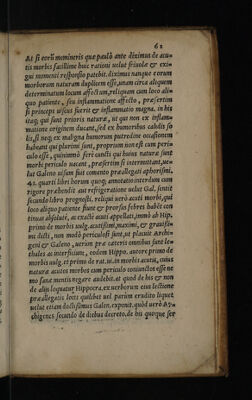 62
At si eorũ memineris quæ paulò ante diximus de acu
tis morbis facillime huic rationi uelut friuolæ & exi
gui momenti responsio patebit. diximus nanque eorum
morborum naturam duplicem esse, unam circa aliquem
determinatum locum affectum, reliquam cum loco ali-
quo patiente, seu inflammatione affecto, præsertim
si princeps uiscus fuerit & inflammatio magna. in his
itaq; qui sunt propria natura, ut qui non ex inflam-
matione originem ducant, sed ex humoribus calidis fi
ãt, si neq; ex maligna humorum putredine occasionem
habeant qui plurimi sunt, proprium non est cum peri-
culo esse, quinimmò fere cuncti qui huius naturæ sunt
morbi periculo uacant, præsertim si intermittant, ue-
lut Galeno uisum fuit comento præallegati aphorismi.
42. quarti libri horum quoq; annotatio interdum cum
rigore præhendit aut refrigeratione uelut Gal. sentit
secundo libro prognosti. reliqui uerò acuti morbi, qui
loco aliquo patiente fiunt & prorsus febres habẽt con
tinuas absolutè, ac exactè acuti appellati, immò ab Hip.
primo de morbis uulg. acutissimi, maximi, & grauissi-
mi dicti, non modò periculosi sunt, ut placuit Archi-
geni & Galeno, uerùm præ cæteris omnibus sunt le-
thales ac interficiunt, eodem Hippo. autore primo de
morbis uulg. et primo de rat. ui. in morbis acutis, cuius
naturæ acutos morbos cum periculo coniunctos esse ne
mo sanæ mentis negare audebit. at quod de his & non
de alijs loquatur Hippocra. ex uerborum eius lectione
præallegatis locis quilibet uel parùm eruditus liquet
uelut etiam doctissimus Galen. exponit. quòd uerò Ar-
chigenes secundo de diebus decreto. de his quoque ser